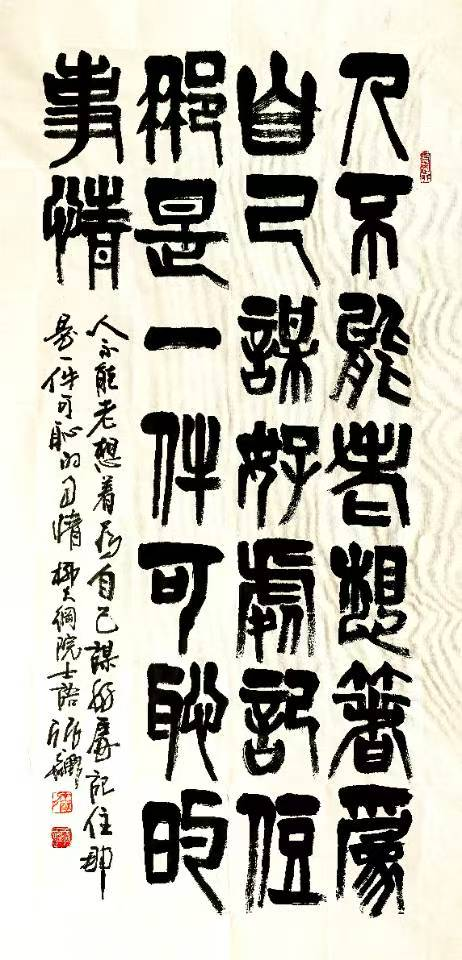 人不能老想着為
自己謀好處記住
那是一件可恥的
事情
人不能老想着为自己謀好處記住那
是一件可恥的事情 柳大綱院士語